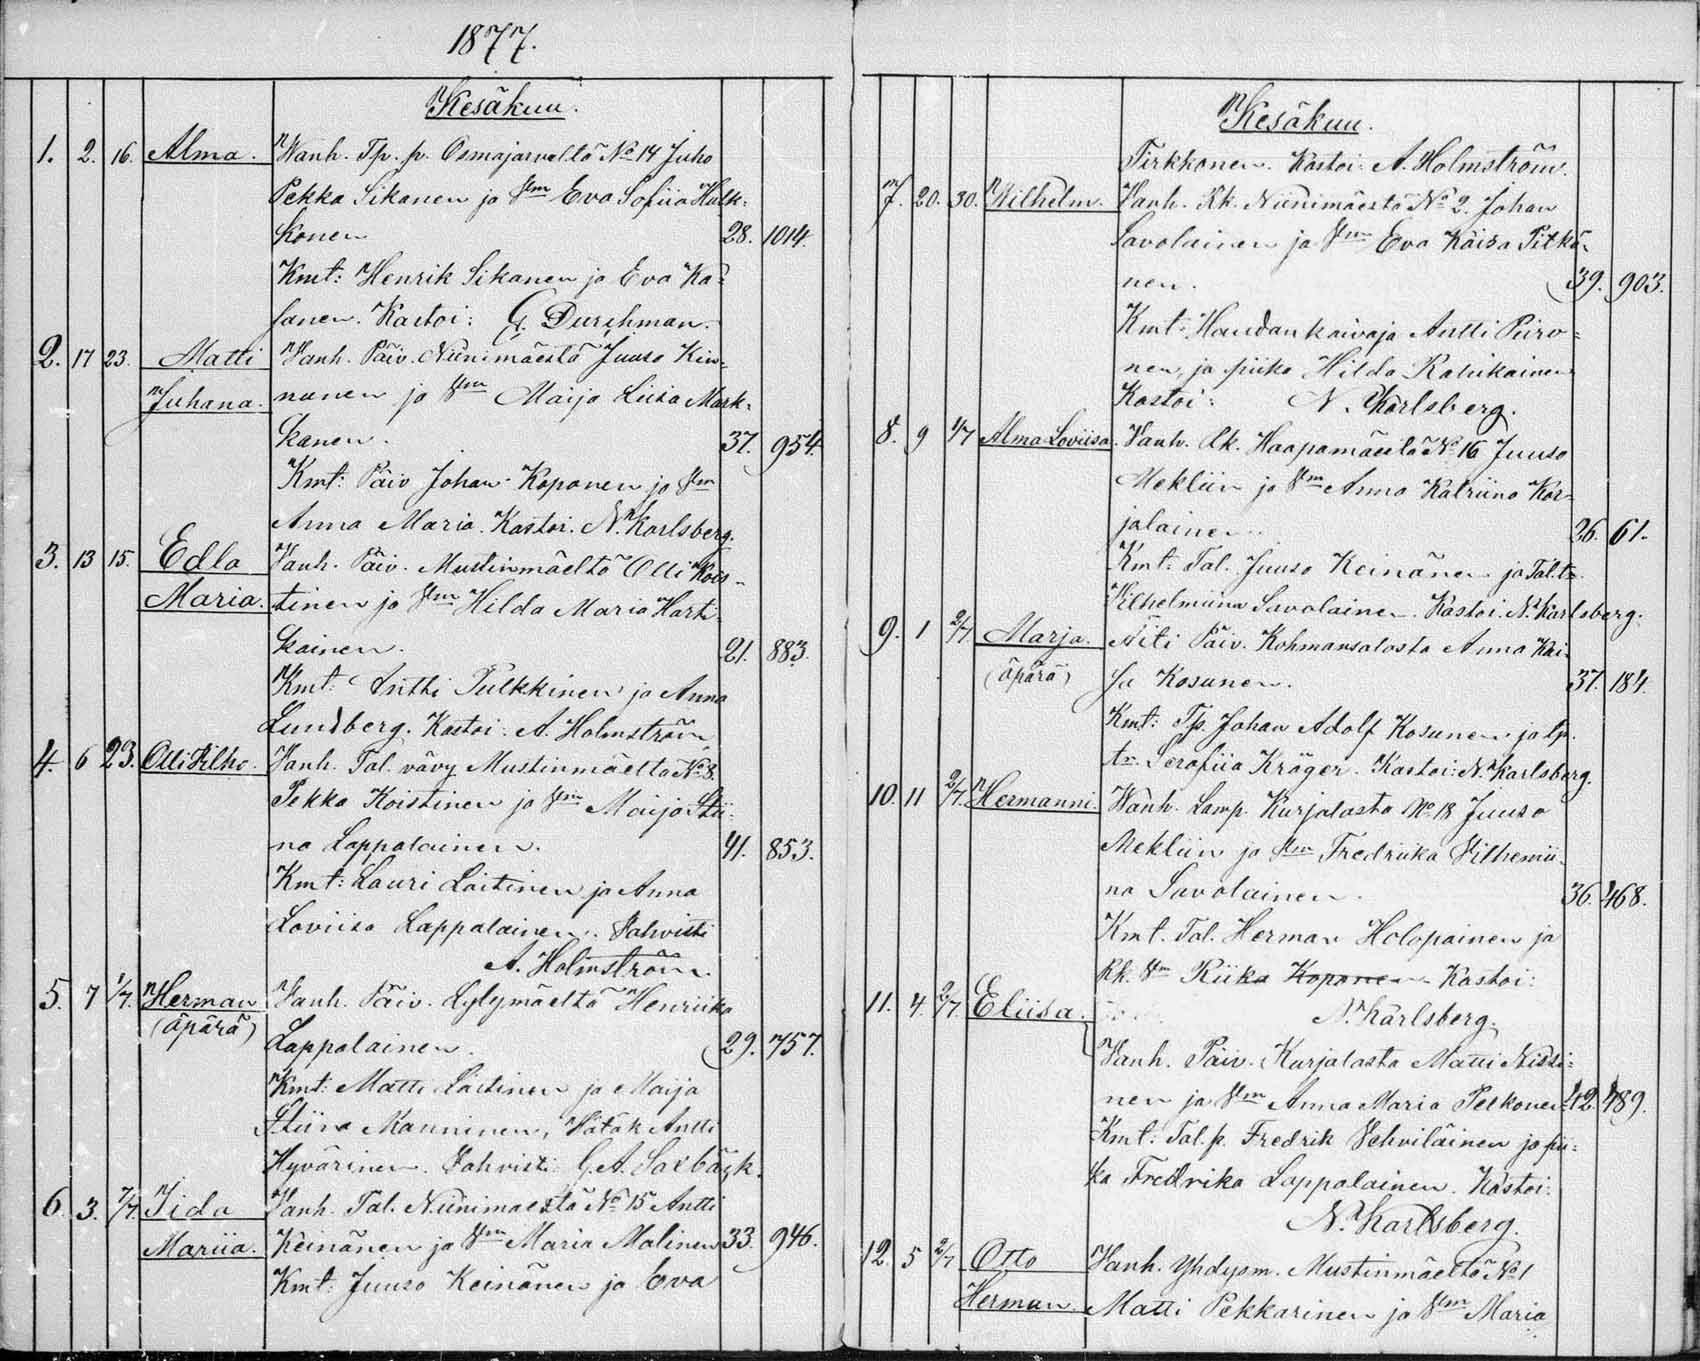 1877.
Kesäkuu.
1. 2. 16. Alma. Wanh. Tp. p. Osmajarveltä No 14 Juho
Pekka Sikanen ja Vm Eva Sofiia Hakk-
konen 28. 1014.
Kmt: Henrik Sikanen ja Eva Ka-
sanen. Kastoi: G. Durchman.
2. 17 23. Matti Vanh. Päiv. Niinimäestä Juuso Kin-
Juhana. nunen ja Vm Maija Liisa Mark-
kanen. 37. 954.
Kmt: Päiv Johan Koponen ja Vm
Anna Maria. Kastoi. N. Karlsberg.
3. 13 15. Edla Vanh. Päiv. Mustinmäeltä Olli Kois-
Maria. tinen ja Vm Hilda Maria Harti-
kainen. 21. 883.
Kmt: Antti Pulkkinen ja Anna
Lundberg. Kastoi: A. Holmström
4. 6 23. Olli Vilho. Vanh. Tal. vävy Mustinmäeltä No 8.
Pekka Koistinen ja Vm Maija Stii-
na Lappalainen. 41. 853.
Kmt: Lauri Laitinen ja Anna
Loviisa Lappalainen. Vahvisti
A. Holmström.
5. 7 1/7. Herman Vanh. Päiv. Lylymäeltä Henriika
(äpärä) Lappalainen. 29. 757.
Kmt: Matti Laitinen ja Maija
Stiina Manninen, Hätäk Antti
Hyvärinen. Vahvisti G. A. Saxbäck.
6. 3. 7/7. Iida Vanh. Tal. Niinimaestä No 15 Antti
Mariia. Keinänen ja Vm Maria Malinen 33. 946.
Kmt: Juuso Keinänen ja Eva
Kesäkuu.
Tirkkonen. Kastoi: A. Holmström.
7. 20. 30. Wilhelm. Vanh. Kk. Niinimäestä No 2. Johan
Savolainen ja Vm Eva Kaisa Pitkä-
nen. 39. 903.
Kmt: Haudankaivaja Antti Piiro-
nen ja piika Hilda Ratikainen
Kastoi: N. Karlsberg.
8. 9 1/7 Alma Loviisa. Vanh. Kk. Haapamäeltä No 16 Juuso
Mekliin ja Vm Anna Katriina Kar-
jalainen. 26. 61.
Kmt: Tal. Juuso Keinänen ja Tal. tr
Vilhelmiina Savolainen. Kastoi. N. Karlsberg.
9. 1 2/7 Marja. Äiti Päiv. Kohmansalosta Anna Kai-
(äpärä) sa Kosunen. 37. 184.
Kmt: Tp. Johan Adolf Kosunen ja lp.
tr Serafiia Kröger. Kastoi: N. Karlsberg.
10. 11 2/7. Hermanni. Wanh. Lamp. Kurjalasta No 18 Juuso
Mekliin ja Vm Fredriika Vilhemii-
na Savolainen. 36. 468.
Kmt. Tal. Herman Holopainen ja
Kk. Vm Riika Koponen Kastoi:
11. 4. 2/7. Eliisa. N. Karlsberg.
Vanh. Päiv. Kurjalasta Matti Nissi-
nen ja Vm Anna Maria Pelkonen 42. 489.
Kmt: Tal. p. Fredrik Vehviläinen ja pii-
ka Fredrika Lappalainen. Kastoi:
N. Karlsberg.
12. 5 2/7 Otto Vanh. Yhdysm. Mustinmäeltä No 1
Herman. Matti Pekkarinen ja Vm Maria